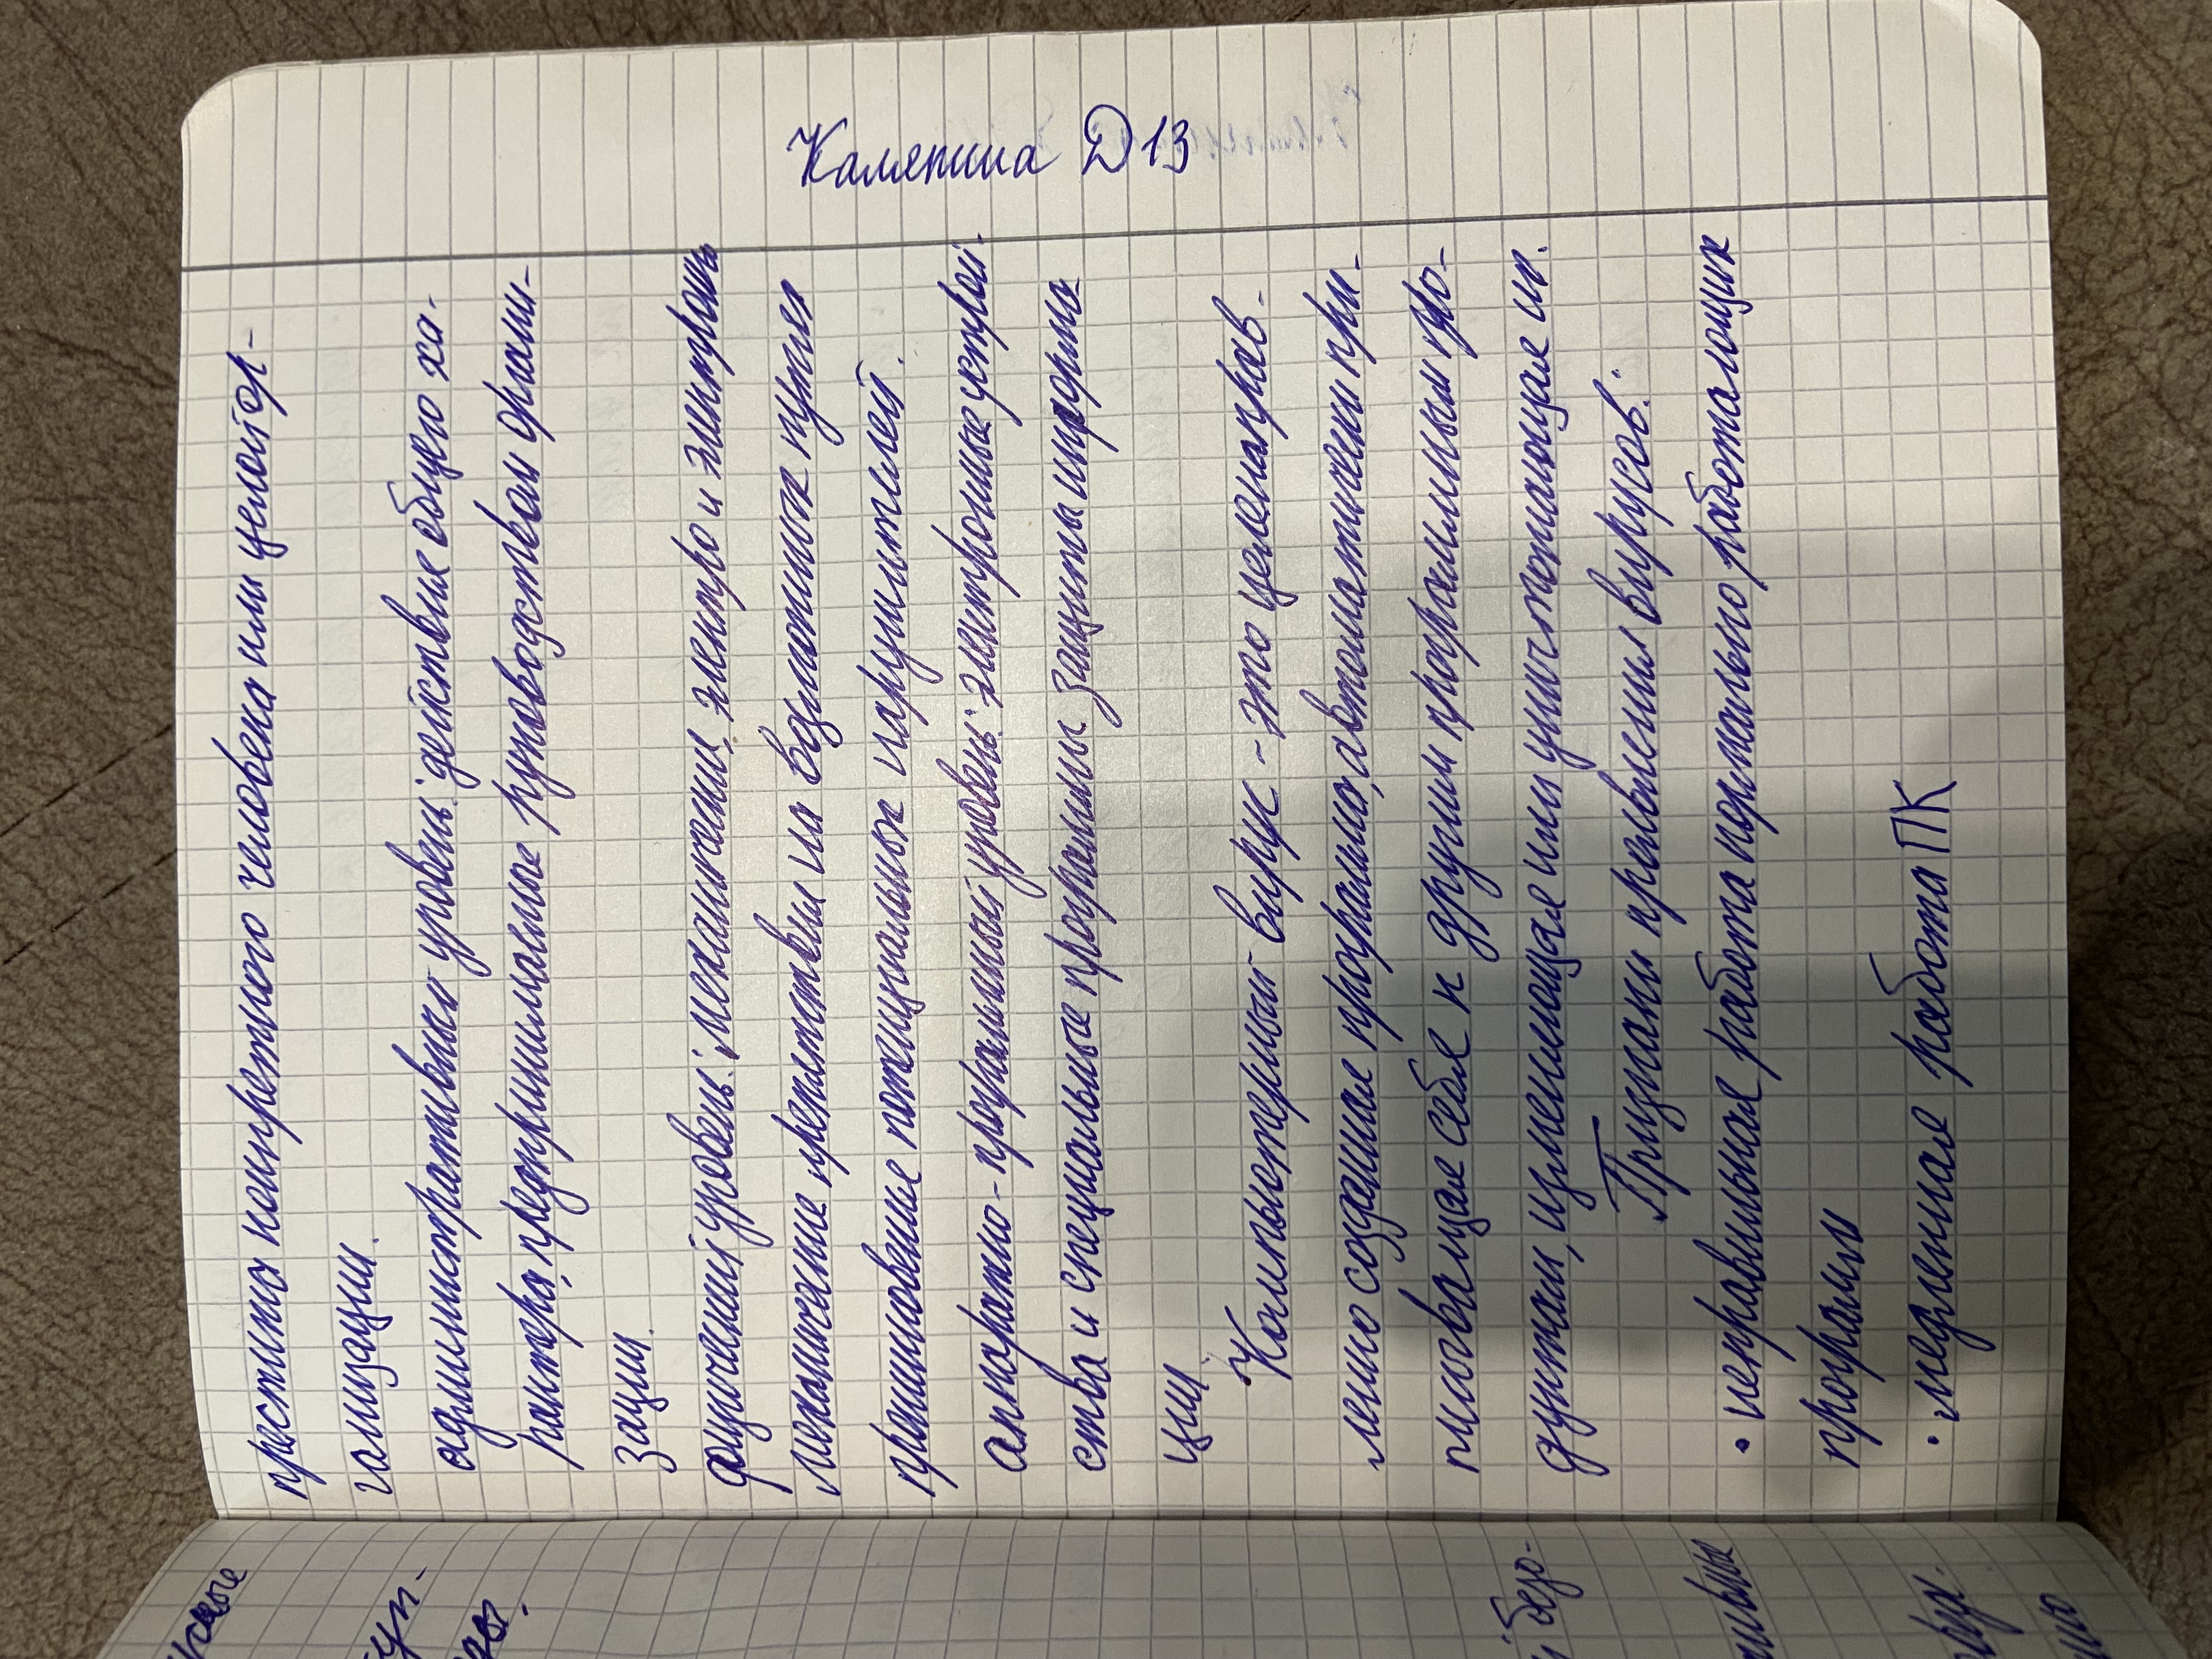 Каляпина Д 13
престижа конкретного человека или целой ор-
ганизации.
административный уровень: действие общего ха-
рактера, предпринимаемые руководством органи-
зации.
физический уровень: механические, электро и электронно
механические препятствия на возможных путях
проникновения потенциальных нарушителей.
аппаратно-програмный уровень: электронные устрой-
ства и специальные программы защиты информа-
ции
Компьютерный вирус - это целенаправ-
ленно созданная программа, автоматически при-
писывающая себя к другим програмным про-
дуктам, изменяющая или уничтожающая их.
Признаки проявления вирусов:
• неправильная работа нормально работающих
програмы
• медленная работа ПК